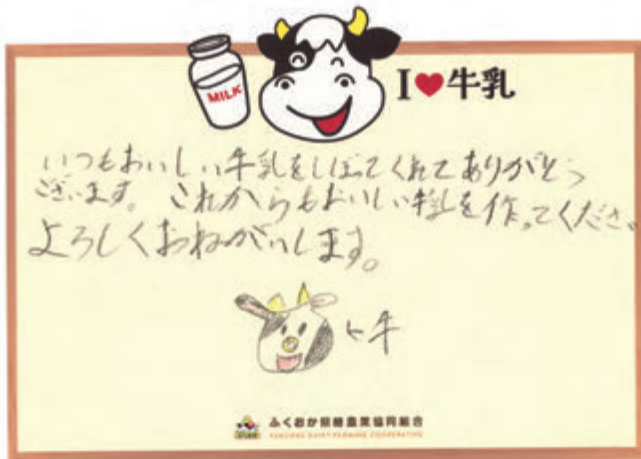 MILK
I♥牛乳
いつもおいしい牛乳をしぼってくれてありがとう
ございます。これからもおいしい牛乳を作ってくださ
よろしくおねがいします。
←牛
ふくおか県酪農業協同組合
FUKUOKA DAIRY FARMING COOPERATIVE